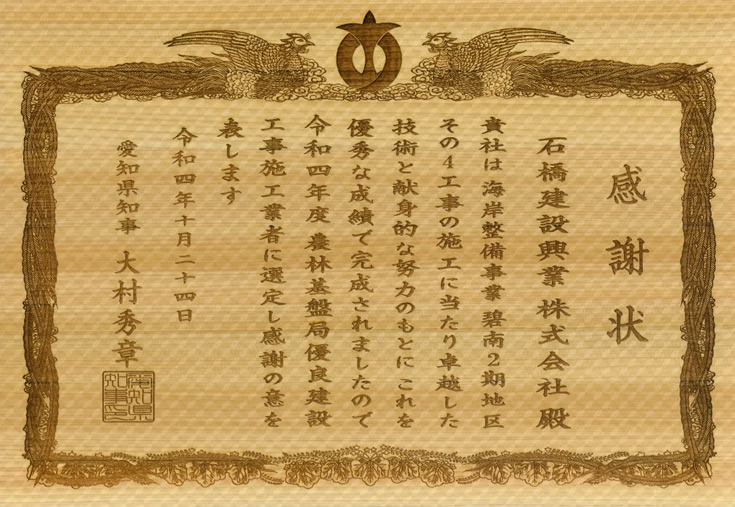 感謝状
石橋建設興業株式会社殿
貴社は海岸整備事業碧南2期地区
その4工事の施工に当たり卓越した
技術と献身的な努力のもとにこれを
優秀な成績で完成されましたので
令和四年度農林基盤局優良建設
工事施工業者に選定し感謝の意を
表します
令和四年十月二十四日
愛知県知事 大村秀章
愛知県
知事印